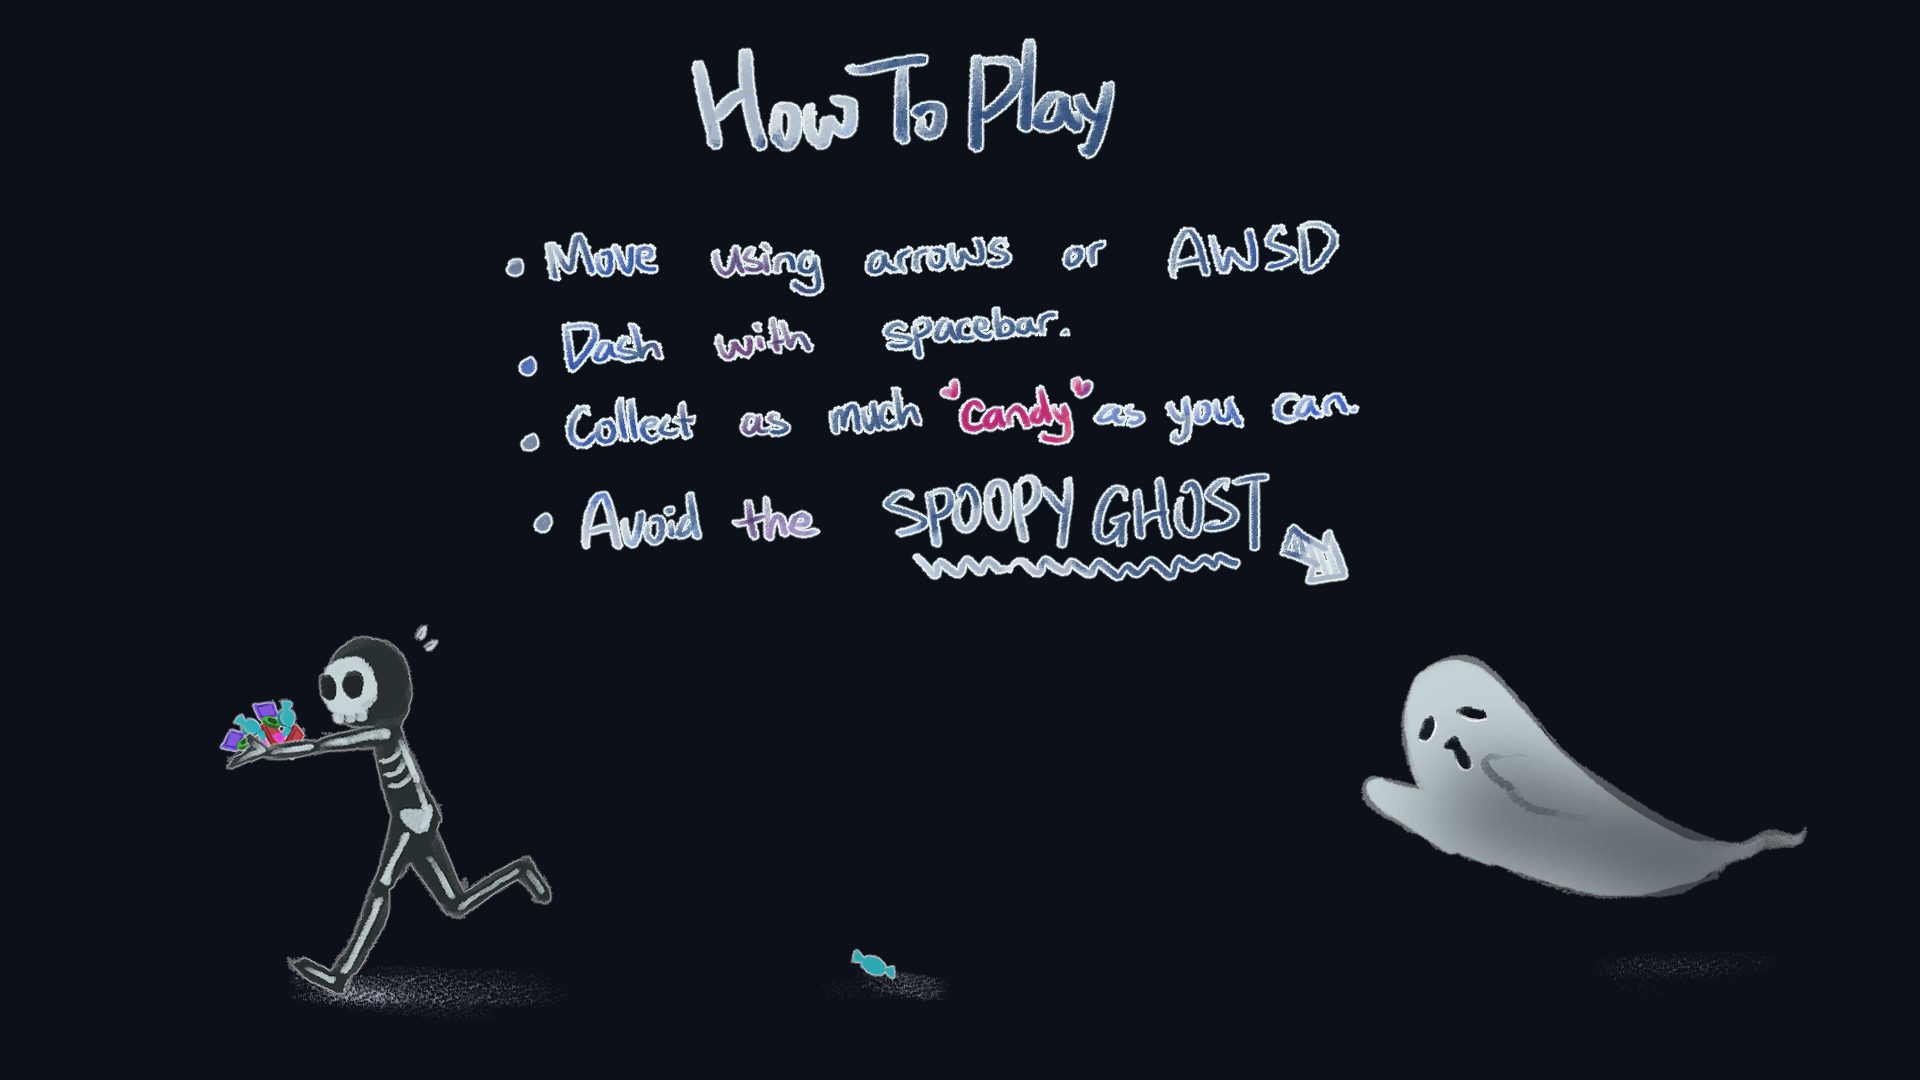 How To Play
• Move using arrows or AWSD
• Dash with spacebar.
• Collect as much "Candy" as you can.
• Avoid the SPOOPY GHOST